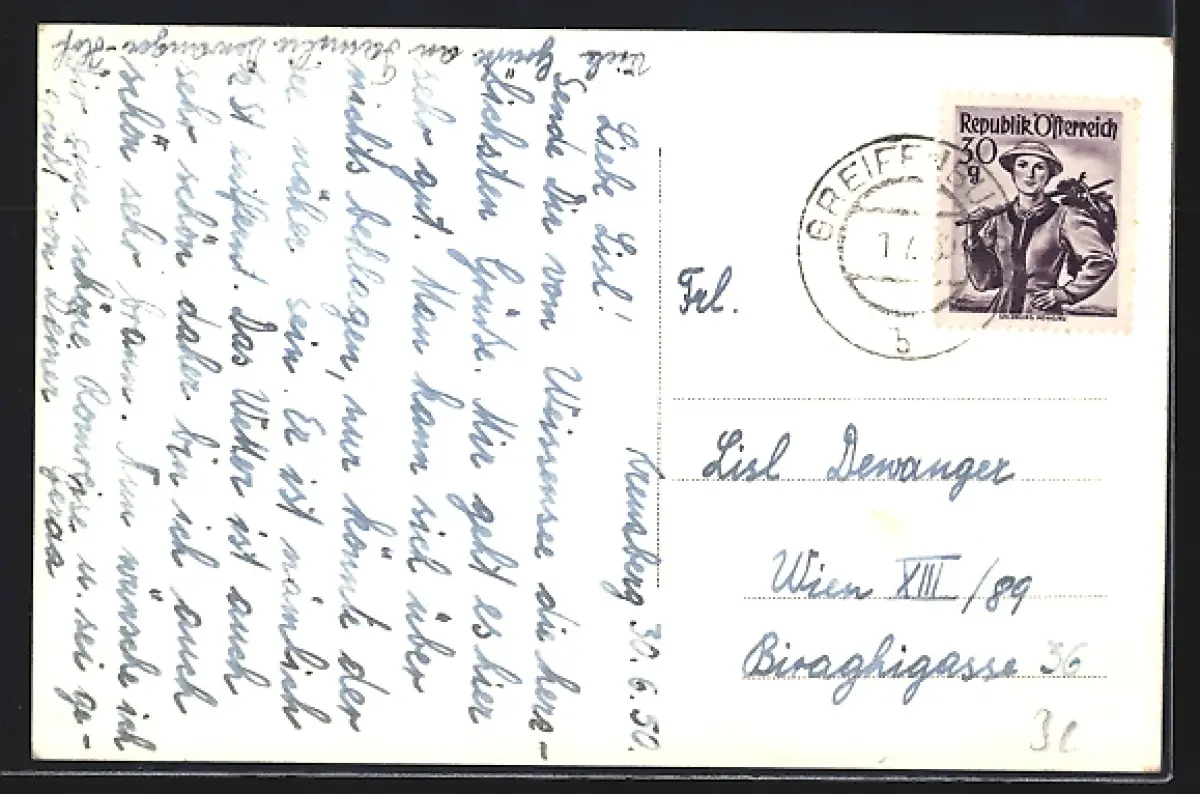 Kreuzberg 30.6.50.
Liebe Lisl!
Sende Dir vom Weissensee die herz-
lichsten Grüße. Mir geht es hier
sehr gut. Man kann sich über
nichts beklagen, nur könnte der
See näher sein. Er ist nämlich
entfernt. Das Wetter ist auch
sehr schön daher bin ich auch
schön sehr braun. Nun wünsche ich
Dir eine schöne Romreise u. sei ge-
grüßt von Deiner
Viele Grüße an Familie Dewanger
Republik Österreich
30
g
GREIFENBURG
b
Frl.
Lisl Dewanger
Wien XIII/89
Biraghigasse 36